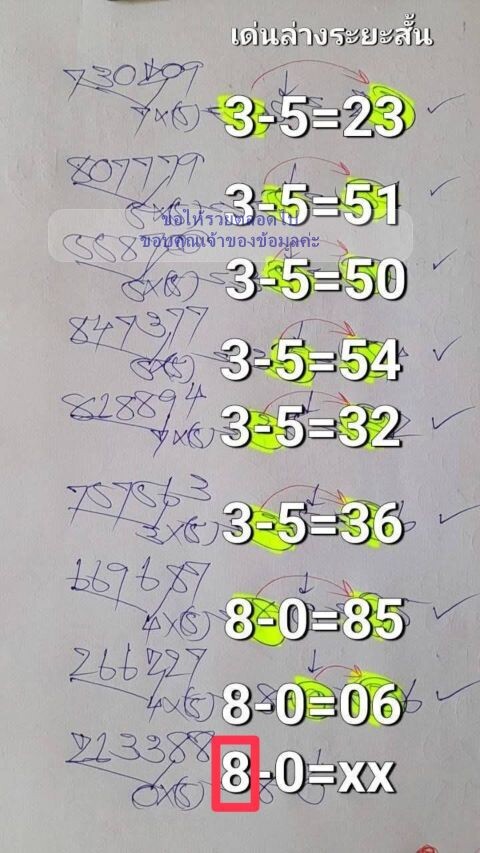 เด่นล่างระยะสั้น
730409
7×(5)
3-5=23
807779
3-5=51
ขอให้รวยตลอดไป
ขอบคุณเจ้าของข้อมูลค่ะ
3-5=50
847377
3-5=54
828894
7×(5)
3-5=32
757563
3×(5)
3-5=36
669687
4×(5)
8-0=85
266727
4×(5)
8-0=06
213388
0×(5)
8-0=xx